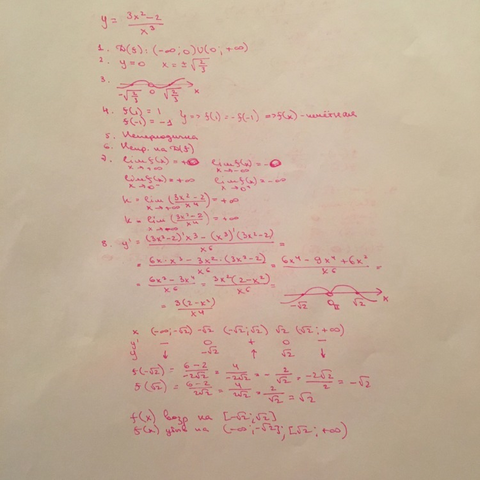 y = (3x²-2)/x³
1. D(f): (-∞; 0)∪(0; +∞)
2. y=0 x = ±√(2/3)
3. -√(2/3) 0 √(2/3) x
4. f(1) = 1 f(-1) = -1 } => f(1) = -f(-1) => f(x) - нечётная
5. Непериодична
6. Непр. на D(f)
7. lim f(x) = +0 x→+∞ lim f(x) = -0 x→-∞
lim f(x) = +∞ lim f(x) = -∞
k = lim (3x²-2)/x⁴ = +∞
k = lim = +∞
8. y' = ((3x²-2)'x³ - (x³)'(3x²-2))/x⁶ =
= (6x·x³ - 3x²·(3x²-2))/x⁶ = (6x⁴ - 9x⁴ + 6x²)/x⁶ =
= = 3x²(2-x²)/x⁶ = -√2 0 √2 x
= (2-x²)/x⁴
x (-∞;-√2) -√2 (-√2;√2) √2 (√2; +∞)
y' - 0 + 0 -
y ↓ -√2 ↑ √2 ↓
f(-√2) = (6-2)/(-2√2) = 4/(-2√2) = -2/√2 = -2√2/2 = -√2
f(√2) = (6-2)/(2√2) = 4/(2√2) = 2/√2 = √2
f(x) возр на [-√2;√2]
f(x) убыв на (-∞;-√2]; [√2; +∞)